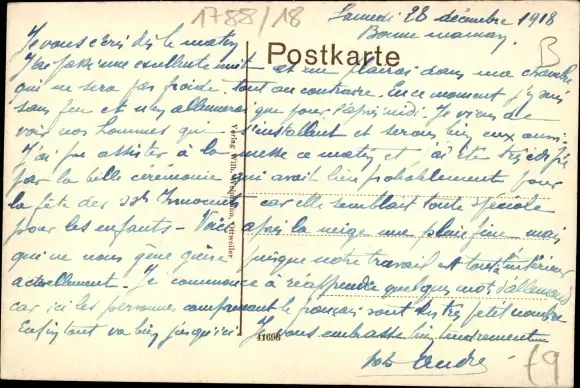 1788/18
Samedi 28 décembre 1918
Bonne maman,
B
Postkarte
Je vous écris dès le matin
J'ai passé une excellente nuit et me plairai dans ma chambre
qui ne sera pas froide, tout au contraire. En ce moment j'y suis
sans feu et n'en allumerai que pour l'après midi. Je viens de
voir nos hommes qui s'installent et seront bien eux aussi.
J'ai pu assister à la messe ce matin et j'ai été très édifié
par la belle cérémonie qui avait lieu probablement pour
la fête des Sts Innocents car elle semblait toute spéciale
pour les enfants - Voici après la neige une pluie fine mais
qui ne nous gêne guère puisque notre travail est tout à l'intérieur
actuellement. Je commence à réapprendre quelques mots d'allemand
car ici les personnes comprenant le français sont en très petit nombre
Enfin tout va bien jusqu'ici Je vous embrasse bien tendrement
André
Verlag Wilh. Ottweiler
11698